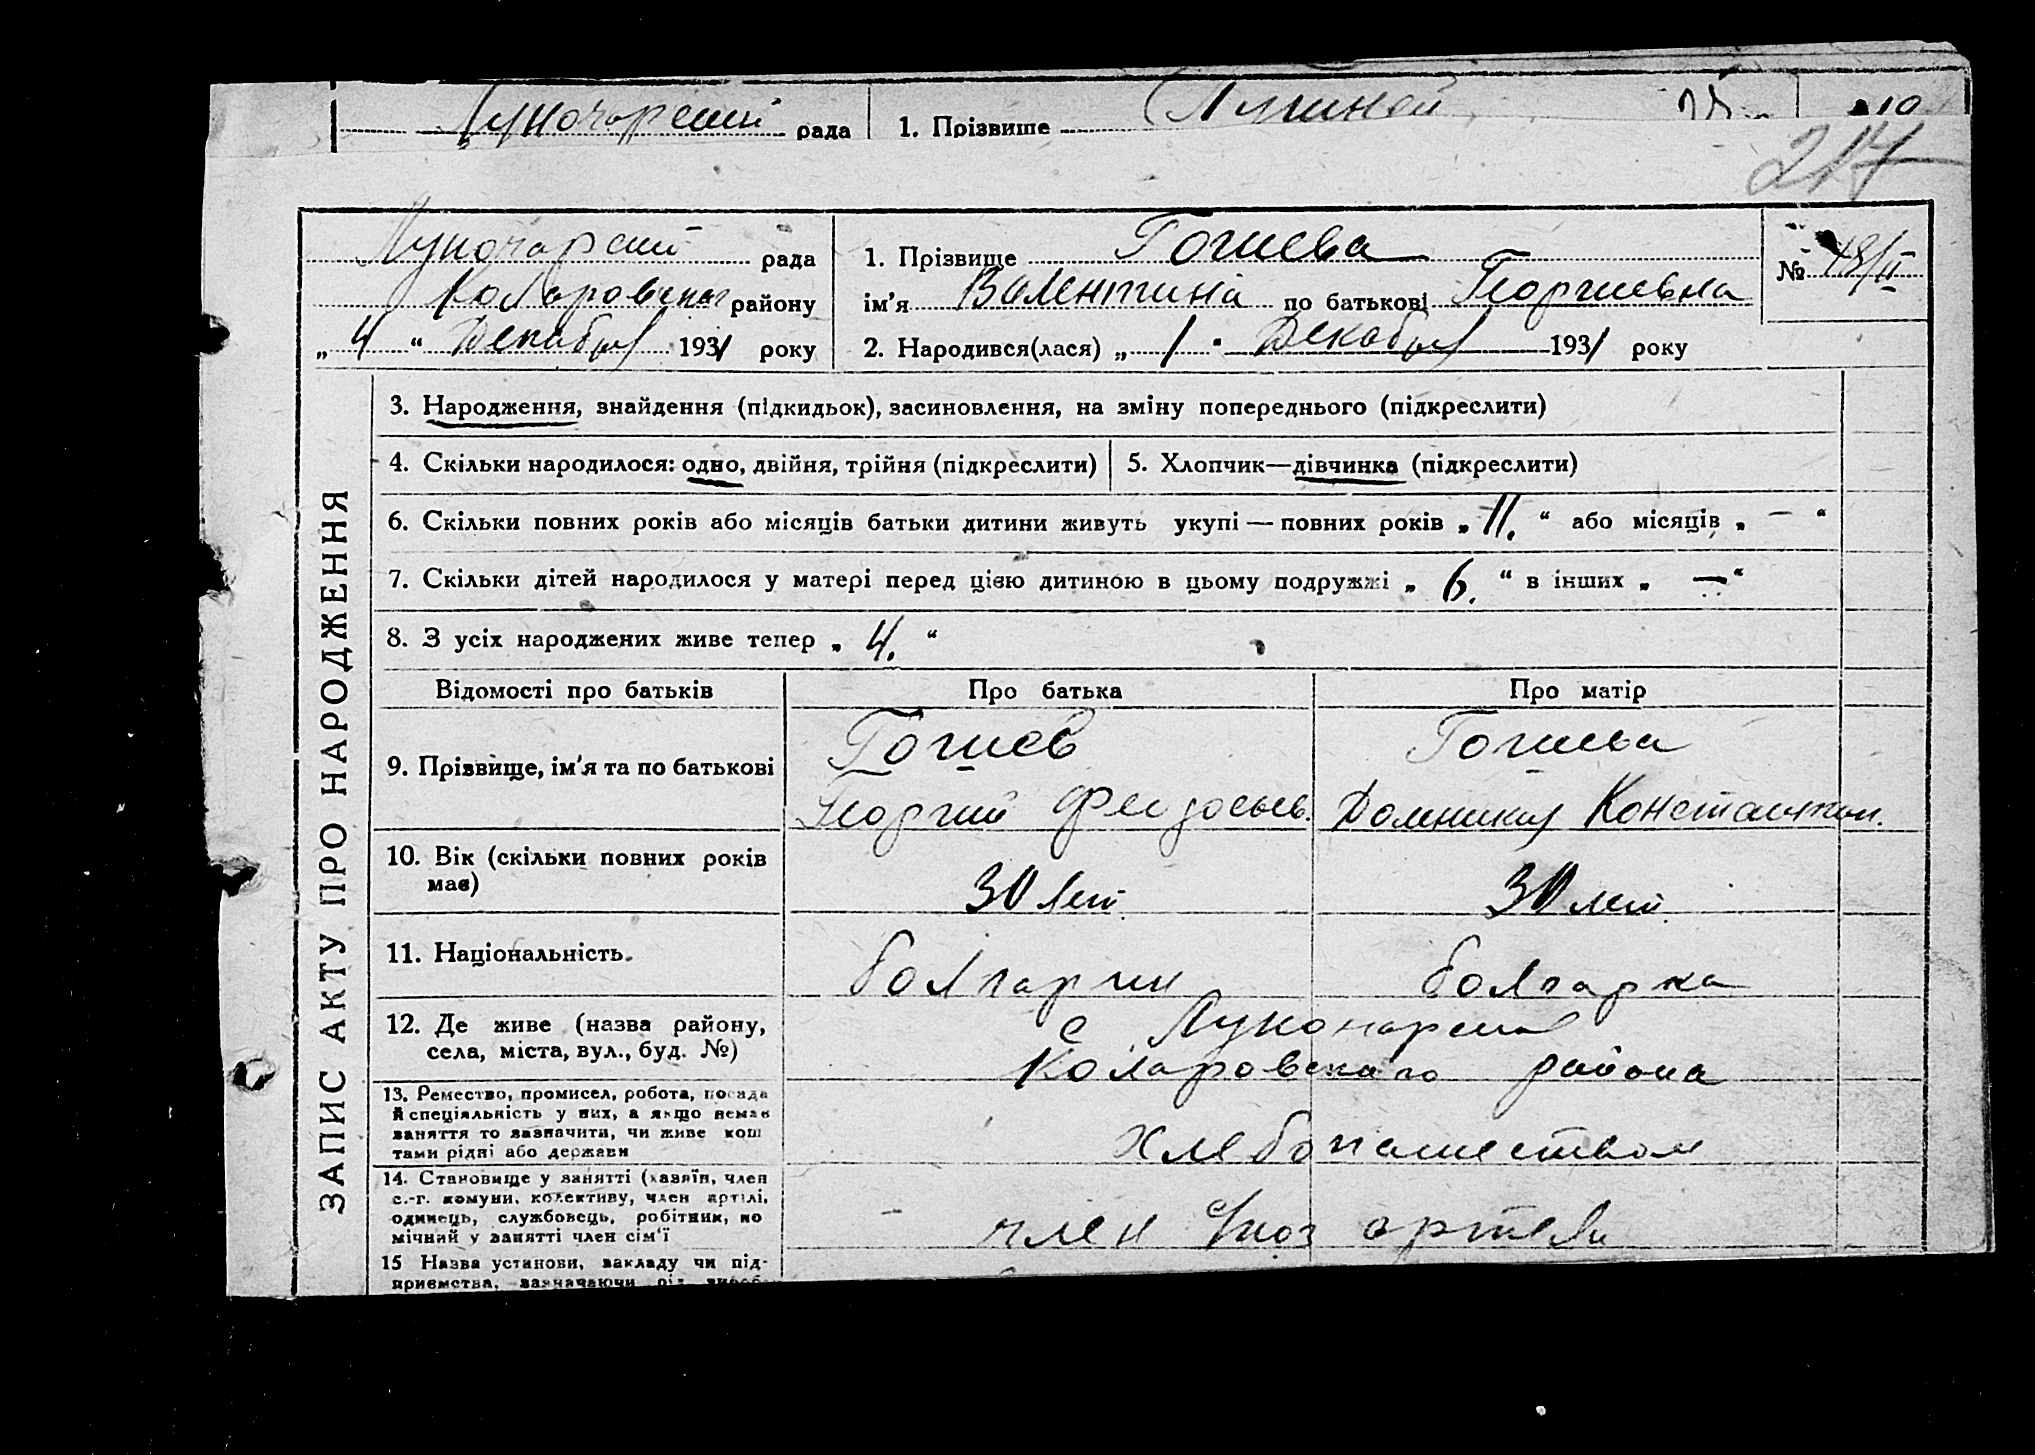 Луночарский рада 1. Прізвище
10
217
Луночарский рада 1. Прізвище Гогиева № 48/II
Коларовског району ім'я Валентина по батькові Георгиевна
„ 4 “ Декабря 1931 року 2. Народився(лася) „ 1 “ Декабря 1931 року
ЗАПИС АКТУ ПРО НАРОДЖЕННЯ
3. Народження, знайдення (підкидьок), засиновлення, на зміну попереднього (підкреслити)
4. Скільки народилося: одно, двійня, трійня (підкреслити) 5. Хлопчик—дівчинка (підкреслити)
6. Скільки повних років або місяців батьки дитини живуть укупі — повних років „ 11. “ або місяців „ — “
7. Скільки дітей народилося у матері перед цією дитиною в цьому подружжі „ 6. “ в інших „ — “
8. З усіх народжених живе тепер „ 4. “
Відомості про батьків Про батька Про матір
9. Прізвище, ім'я та по батькові Гогиев Гогиева
Георгий Феодосьев. Домникия Константин.
10. Вік (скільки повних років має) 30 лет 30 лет.
11. Національність. болгарин болгарка
12. Де живе (назва району, с Луночарск
села, міста, вул., буд. №) Коларовского района
13. Ремество, промисел, робота, посада
й спеціяльність у них, а якщо немає
заняття то зазначити, чи живе кош
тами рідні або держави хлебопашеством
14. Становище у занятті (хазяїн, член
с.-г. комуни, колективу, член артілі,
одинець, службовець, робітник, по
мічний у занятті член сім'ї член с/хоз артели
15 Назва установи, закладу чи під-
приємства, зазначаючи рід вироб-